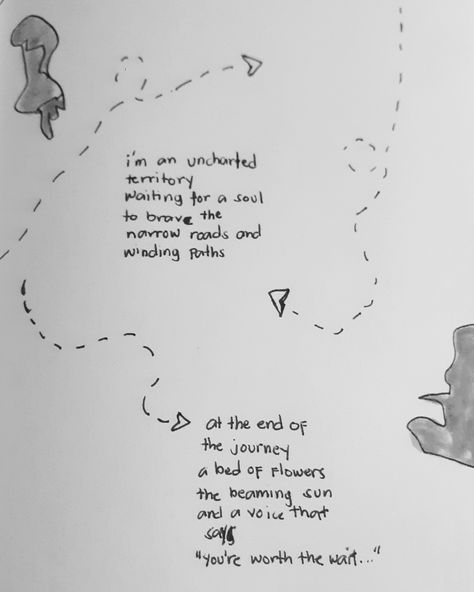 i'm an uncharted
territory
waiting for a soul
to brave the
narrow roads and
winding paths
at the end of
the journey
a bed of flowers
the beaming sun
and a voice that
says
"you're worth the wait..."